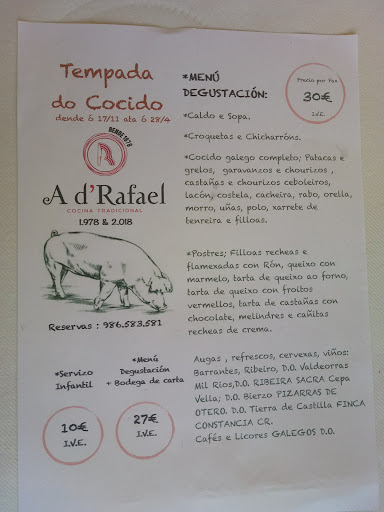 Tempada
do Cocido
desde ó 17/11 ata ó 28/4
DESDE 1978
A d'Rafael
COCINA TRADICIONAL
1.978 & 2.018
Reservas : 986.583.581
*Servizo
Infantil
10€
I.V.E.
*Menú
Degustación
+ Bodega de carta
27€
I.V.E.
*MENÚ
DEGUSTACIÓN:
Precio por Pax
30€
I.V.E.
*Caldo e Sopa.
*Croquetas e Chicharróns.
*Cocido galego completo; Patacas e
grelos, garavanzos e chourizos ,
castañas e chourizos ceboleiros,
lacón, costela, cacheira, rabo, orella,
morro, uñas, polo, xarrete de
tenreira e filloas.
*Postres; Filloas recheas e
flamexadas con Rón, queixo con
marmelo, tarta de queixo ao forno,
tarta de queixo con froitos
vermellos, tarta de castañas con
chocolate, melindres e cañitas
recheas de crema.
Augas , refrescos, cervexas, viños:
Barrantes, Ribeiro, D.O. Valdeorras
Mil Rios,D.O. RIBEIRA SACRA Cepa
Vella; D.O. Bierzo PIZARRAS DE
OTERO. D.O. Tierra de Castilla FINCA
CONSTANCIA CR.
Cafés e Licores GALEGOS D.O.